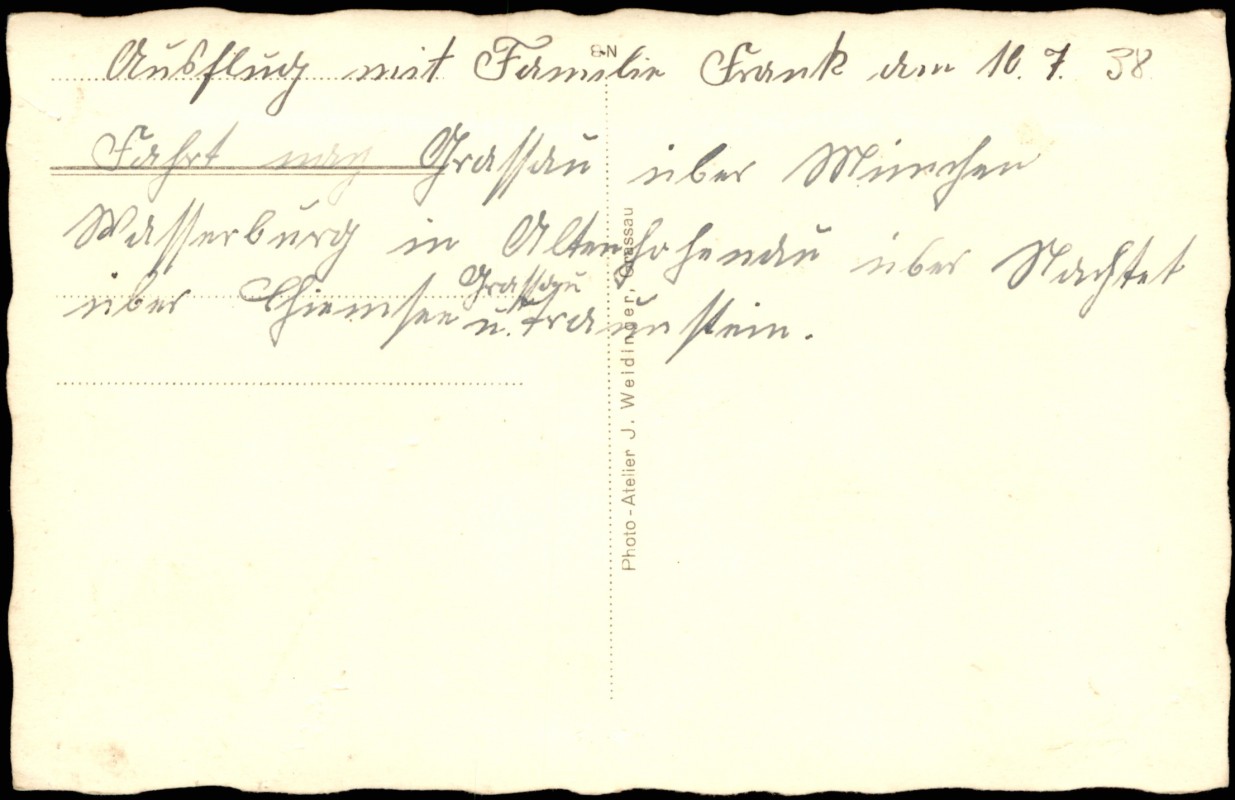 Ausflug mit Familie Frank am 10. 7. 38
Fahrt nach Grassau über München
Wasserburg in Altenhohenau über
über Chiemsee Grassau u. Traunstein.
Photo-Atelier J. Weidinger, Grassau